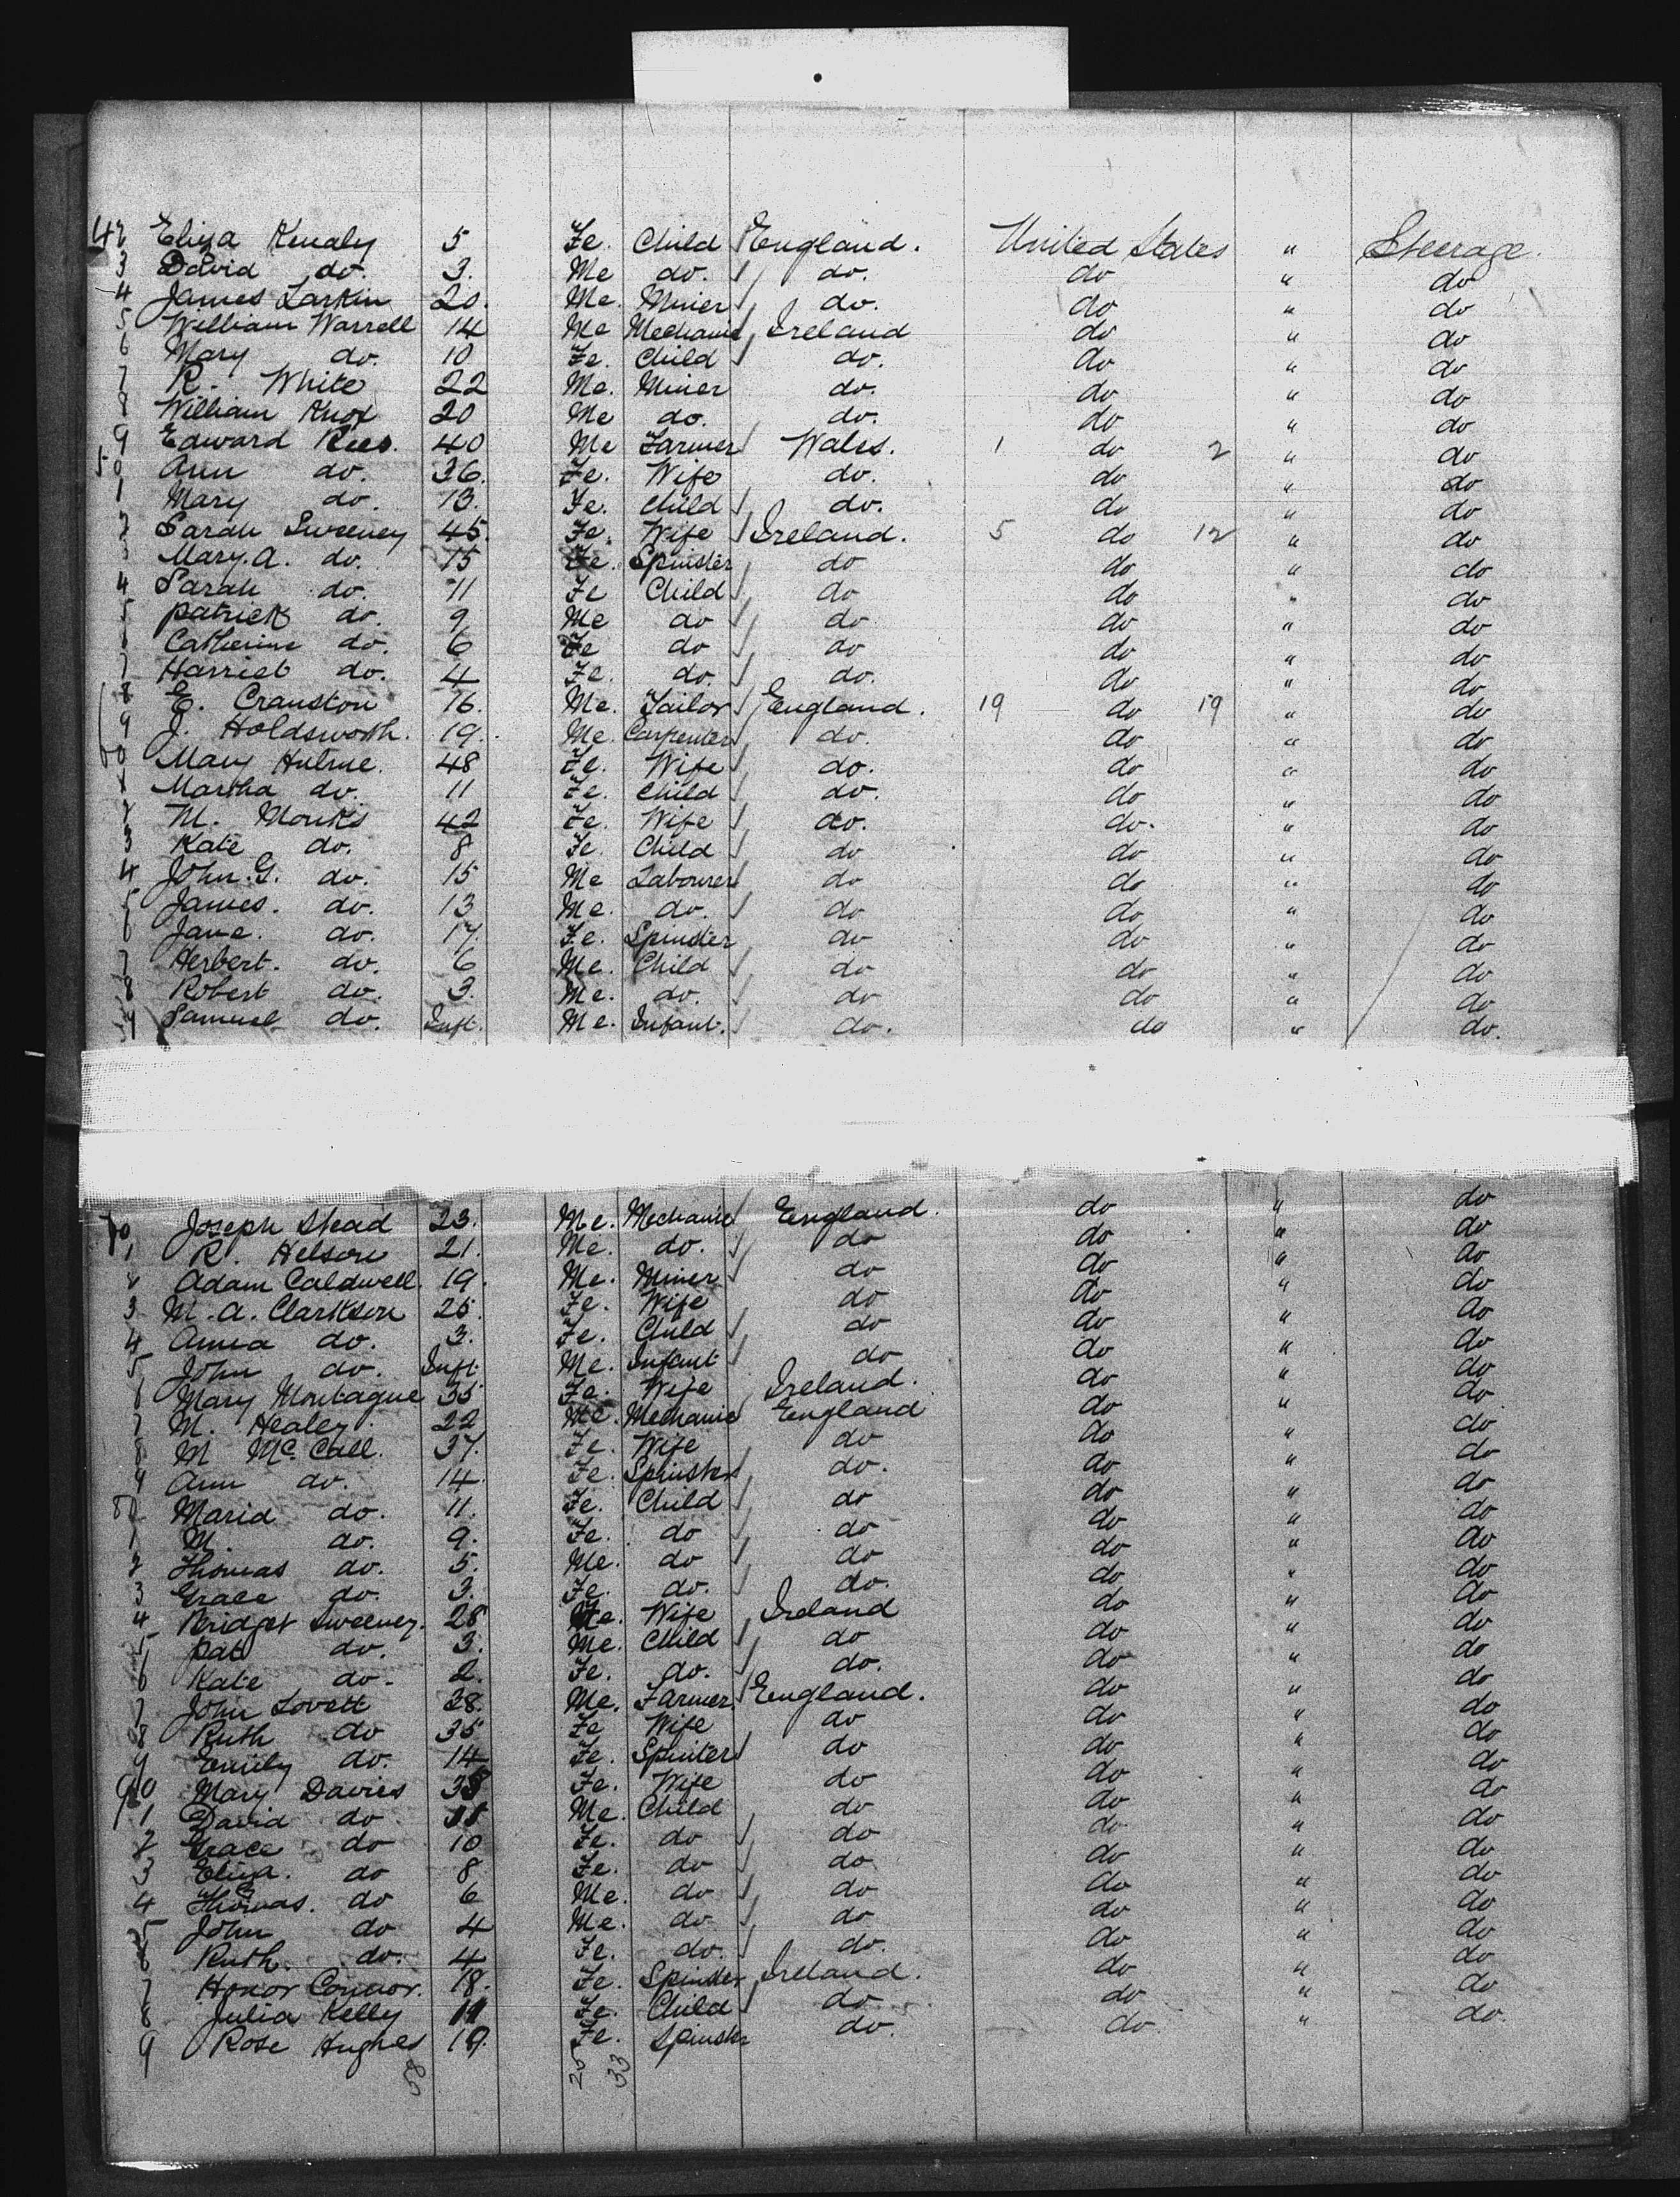 42 Eliza Kenaly 5 Fe. Child England. United States " Steerage.
3 David do. 3. Me do. do. do " do
4 James Larkin 20. Me. Miner do. do " do
5 William Warrell 14 Me Mechanic Ireland do " do
6 Mary do. 10 Fe. Child do. do " do
7 R. White 22 Me. Miner do. do " do
8 William Knox 20 Me do. do. do " do
9 Edward Rees. 40 Me Farmer Wales. 1 do 2 " do
50 Ann do. 36. Fe. Wife do. do " do
1 Mary do. 13. Fe. Child do. do " do
2 Sarah Sweeney 45. Fe. Wife Ireland. 5 do 12 " do
3 Mary. A. do. 15 Fe. Spinster do do " do
4 Sarah do. 11 Fe Child do do " do
5 Patrick do. 9 Me do do do " do
6 Catherine do. 6 Fe do do do " do
7 Harriet do. 4 Fe. do. do. do " do
8 E. Cranston 16. Me. Tailor England. 19 do 19 " do
9 J. Holdsworth. 19. Me. Carpenter do. do " do
60 Mary Hulme. 48 Fe. Wife do. do " do
1 Martha do. 11 Fe. Child do. do " do
2 M. Monks 42 Fe. Wife do. do. " do
3 Kate do. 8 Fe Child do do " do
4 John. G. do. 15 Me Labourer do do " do
5 James. do. 13 Me. do. do do " do
6 Jane. do. 17. Fe. Spinster do do " do
7 Herbert. do. 6 Me. Child do do " do
8 Robert do. 3. Me. do. do do " do
9 Samuel do. Inft. Me. Infant. do. do " do.
70 Joseph Stead 23. Me. Mechanic England. do " do
1 R. Helson 21. Me. do. do do " do
2 Adam Caldwell. 19. Me. Miner do do " do
3 M. A. Clarkson 25. Fe. Wife do do " do
4 Annia do. 3. Fe. Child do do " do
5 John do. Inft. Me. Infant do do " do
6 Mary Montague 35 Fe. Wife Ireland. do " do
7 M. Healey. 22 Me. Mechanic England do " do
8 M McCall. 37. Fe. Wife do do " do
9 Ann do. 14. Fe. Spinster do. do " do
80 Maria do. 11. Fe. Child do do " do
1 M. do. 9. Fe. do do do " do
2 Thomas do. 5. Me. do do do " do
3 Grace do. 3. Fe. do. do. do " do
4 Bridget Sweeney. 28 Fe. Wife Ireland do " do
5 Pat do. 3. Me. Child do do " do
6 Kate do. 2. Fe. do. do. do " do
7 John Lovett 38. Me. Farmer. England. do " do
8 Ruth do 35 Fe Wife do do " do
9 Emily do. 14 Fe. Spinster do do " do
90 Mary Davies 38 Fe. Wife do do " do
1 David do. 11 Me. Child do do " do
2 Grace do 10 Fe. do do do " do
3 Eliza. do 8 Fe. do do do " do
4 Thomas. do 6 Me. do do do " do
5 John do 4 Me. do do do " do
6 Ruth. do. 4 Fe. do. do. do " do
7 Honor Connor. 18. Fe. Spinster Ireland. do " do
8 Julia Kelly 11 Fe. Child do do " do
9 Rose Hughes 19. Fe. Spinster do. do. " do.
58 25 33